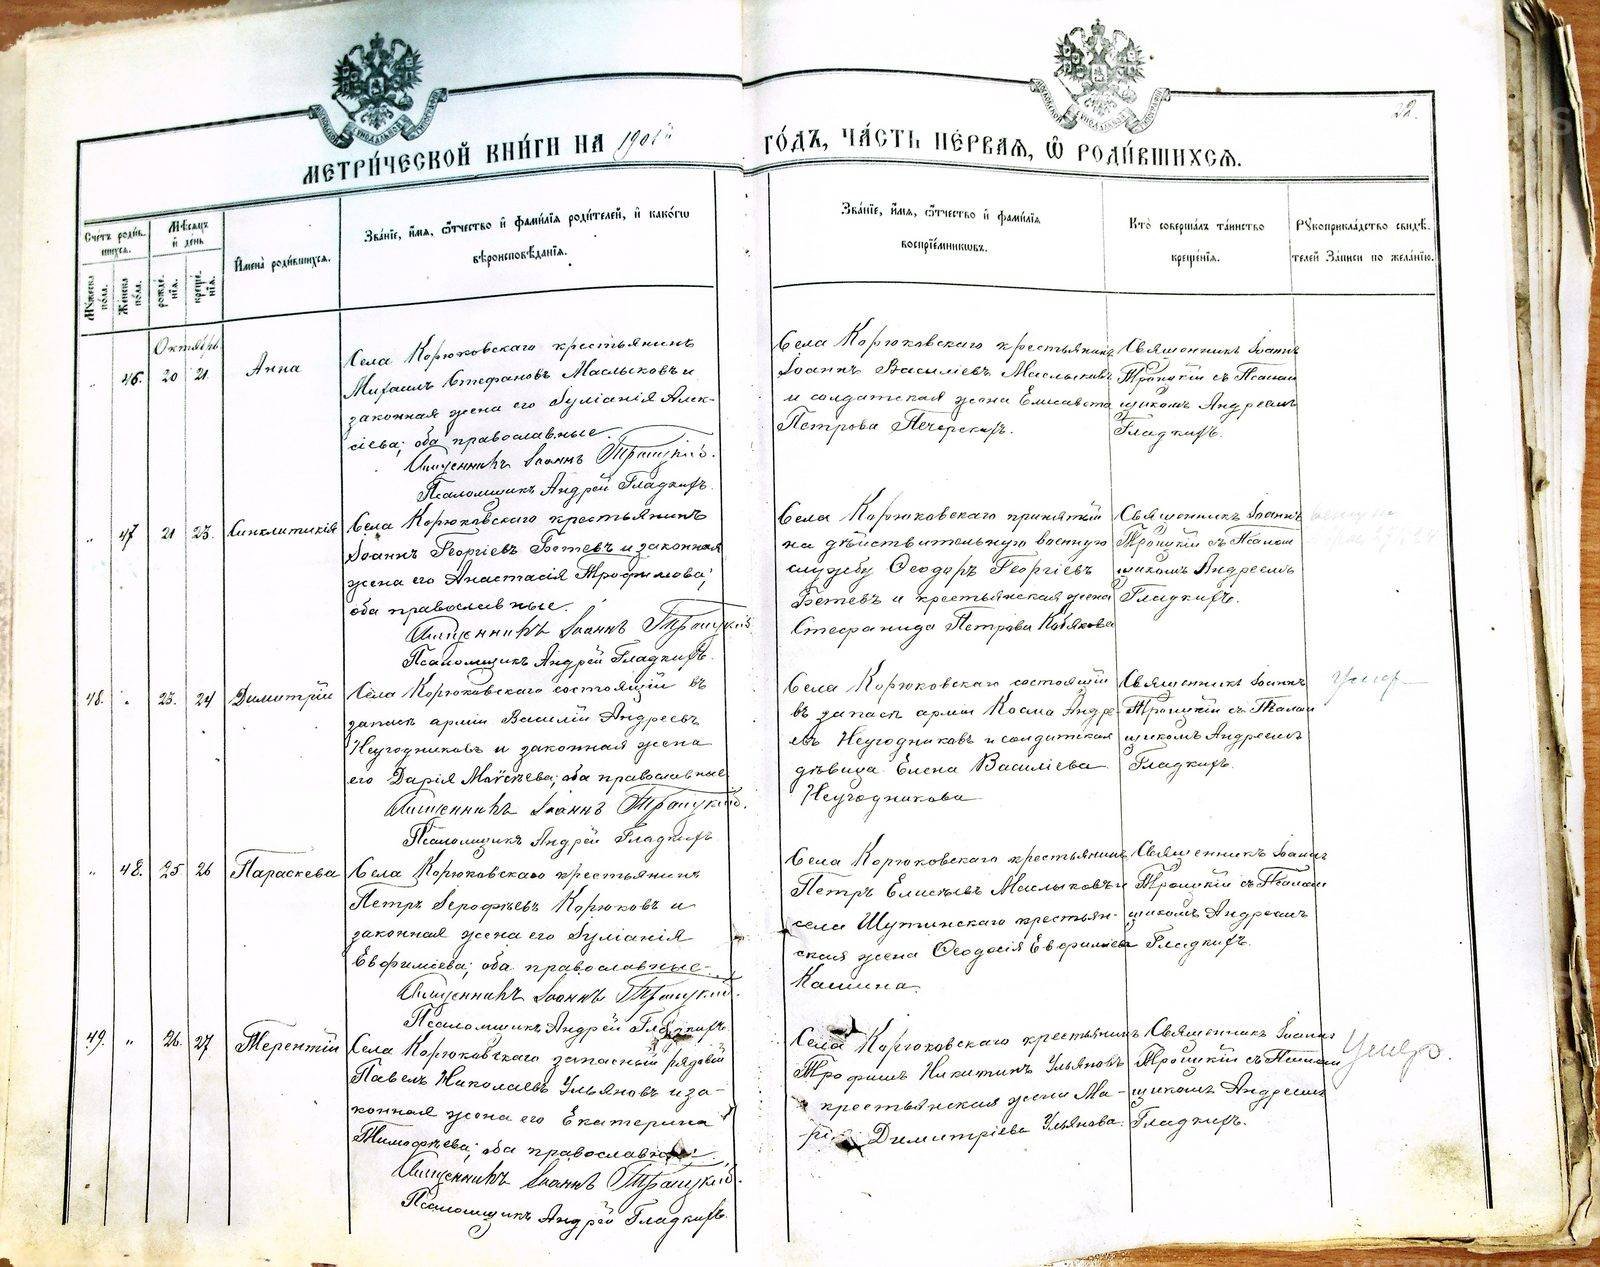 22.
МЕТРИ́ЧЕСКОЙ КНИ́ГИ НА 1901й ГО́ДЪ, ЧА́СТЬ ПЕ́РВАЯ, Ѡ РОДИ́ВШИХСЯ.
Сче́тъ роди́в-
шихся.
Му́жеска по́ла.
Же́нска по́ла.
Мѣ́сяцъ и де́нь
рожде́нїя.
креще́нїя.
И҆мена̀ роди́вшихся.
Зва́нїе, и҆́мя, ѻ҆́тчество и҆ фами́лїя роди́телей, и҆ како́гѡ
вѣроисповѣ́данїя.
Зва́нїе, и҆́мя, ѻ҆́тчество и҆ фами́лїя
воспрїе́мниковъ.
Кто̀ соверша́лъ та́инство
креще́нїя.
Рꙋкоприкла́дство свидѣ́-
телей за́писи по жела́нїю.
Октябрь
„ 46. 20 21 Анна
Села Корюковскаго крестьянинъ
Михаилъ Стефановъ Маслыковъ и
законная жена его Іуліанія Алек-
сіева; оба православные.
Священникъ Іоаннъ Троицкій.
Псаломщикъ Андрей Гладкихъ.
Села Корюковскаго крестьянинъ
Іоаннъ Василіевъ Маслыковъ
и солдатская жена Елисавета
Петрова Печерскихъ.
Священникъ Іоаннъ
Троицкій съ Псалом
щикомъ Андреемъ
Гладкихъ.
„ 47 21 23. Синклитикія
Села Корюковскаго крестьянинъ
Іоаннъ Георгіевъ Бетевъ и законная
жена его Анастасія Трофимова;
оба православные.
Священникъ Іоаннъ Троицкій
Псаломщикъ Андрей Гладкихъ.
Села Корюковскаго принятый
на дѣйствительную военную
службу Ѳеодоръ Георгіевъ
Бетевъ и крестьянская жена
Стефанида Петрова Кобякова
Священникъ Іоаннъ
Троицкій съ Псалом
щикомъ Андреемъ
Гладкихъ.
48. „ 23. 24 Димитрій
Села Корюковскаго состоящій въ
запасѣ арміи Василій Андреевъ
Неугодниковъ и законная жена
его Дарія Моѵсеева; оба православные
Священникъ Іоаннъ Троицкій.
Псаломщикъ Андрей Гладкихъ
Села Корюковскаго состоящій
въ запасѣ арміи Косма Андре-
евъ Неугодниковъ и солдатская
дѣвица Елена Василіева
Неугодникова
Священникъ Іоаннъ
Троицкій съ Псалом
щикомъ Андреемъ
Гладкихъ.
Умеръ
„ 48. 25 26 Параскева
Села Корюковскаго крестьянинъ
Петръ Іероѳеевъ Корюковъ и
законная жена его Іуліанія
Евфиміева; оба православные.
Священникъ Іоаннъ Троицкій.
Псаломщикъ Андрей Гладкихъ.
Села Корюковскаго крестьянинъ
Петръ Елисѣевъ Маслыковъ и
села Шутинскаго крестьян-
ская жена Ѳеодосія Евфиміева
Кашина.
Священникъ Іоаннъ
Троицкій съ Псалом
щикомъ Андреемъ
Гладкихъ.
49. „ 26. 27 Терентій
Села Корюковскаго запасный рядовой
Павелъ Николаевъ Ульяновъ и за-
конная жена его Екатерина
Тимофѣева; оба православные.
Священникъ Іоаннъ Троицкій.
Псаломщикъ Андрей Гладкихъ.
Села Корюковскаго крестьянинъ
Трофимъ Никитинъ Ульяновъ
крестьянская жена Ма-
рія Димитріева Ульянова.
Священникъ Іоаннъ
Троицкій съ Псалом
щикомъ Андреемъ
Гладкихъ.
Умеръ.